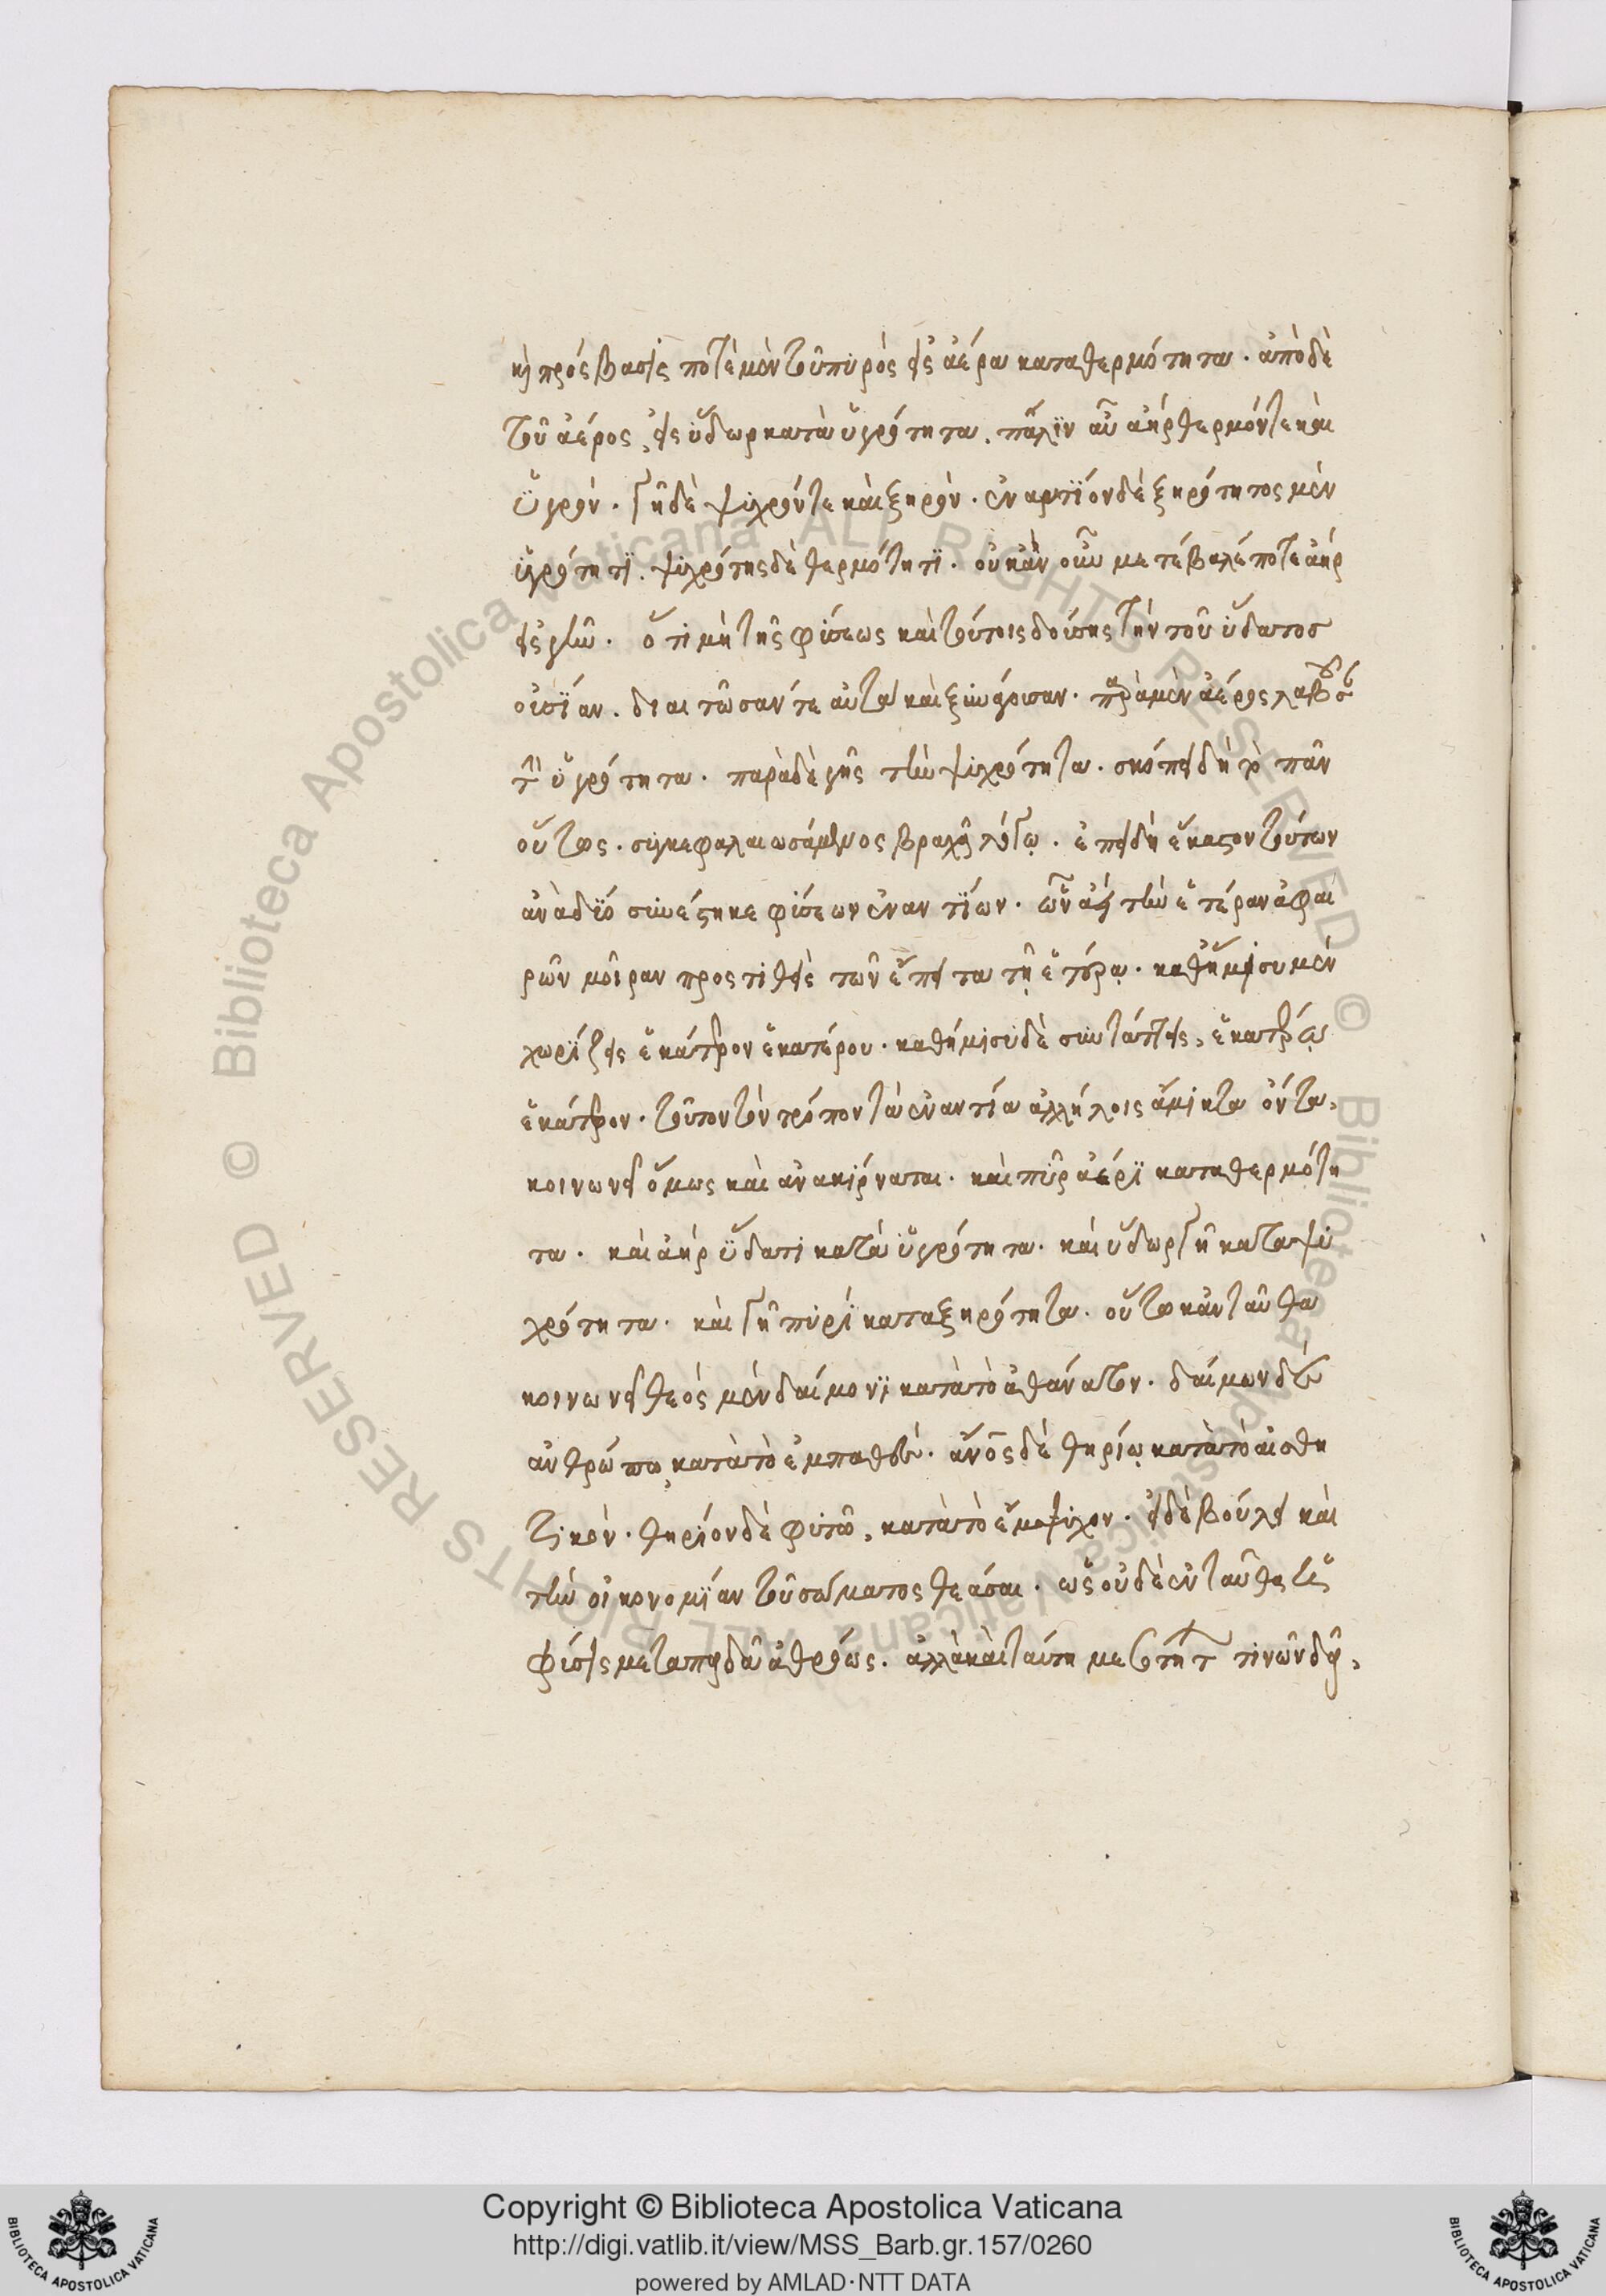 κ(αὶ) πρόςβασις ποτὲ μὲν τοῦ πυρὸς εἰς ἀέρα κατα θερμότητα · ἀπὸ δὲ
τοῦ ἀέρος, εἰς ὕδωρ κατὰ ὑγρότητα. πάλϊν αὖ ἀὴρ θερμόν τε καὶ
ὑγρόν · γῆ δὲ ψυχρόν τε καὶ ξηρόν · ἐναντίον δὲ ξηρότητος μὲν
ὑγρότητϊ. ψυχρότης δὲ θερμότητϊ · οὐκ ἂν οὖν μετέβαλέ ποτε ἀὴρ
εἰς γῆν · ὅτι μὴ τῆς φύσεως καὶ τούτοις δούσης τὴν τοῦ ὕδατος
οὐσΐαν. διαιτῶσαν τε αὐτὰ καὶ ξυνάγουσαν · παρὰ μὲν ἀέρος λαβοῦσ
τ(ὴν) ὑγρότητα · παρὰ δὲ γῆς τὴν ψυχρότητα · σκόπει δὴ τὸ πᾶν
οὕτως · συγκεφαλαιωσάμενος βραχεῖ λόγῳ · ἐπειδὴ ἕκαστον τούτων
ἀνὰ δϊό συνέστηκε φύσεων ἐναντϊων · ὧν ἀεὶ τὴν ἑτέραν ἀφαι
ρῶν μοῖραν προςτιθεὶς τῶν ἔπειτα τῇ ἑτέρᾳ · καθ' ἥμισυ μὲν
χωρίζεις ἑκάτερον ἑκατέρου · καθήμισυ δὲ συντάττεις, ἑκατέρῳ
ἑκάτερον · τοῦτον τὸν τρόπον τὰ ἐναντία ἀλλήλοις ἄμικτα ὄντα,
κοινωνεῖ ὅμως καὶ ἀνακίρναται · καὶ πῦρ ἀέρϊ κατα θερμότη
τα · καὶ ἀὴρ ὕδατι κατὰ ὑγρότητα · καὶ ὕδωρ γῆ κατα ψυ
χρότητα · καὶ γῆ πυρὶ κατα ξηρότητα · οὕτω κἀνταῦθα
κοινωνεῖ θεὸς μὲν δαίμονϊ κατὰ τὸ ἀθάνατον · δαίμων δὲ
ἀνθρώπῳ κατὰ τὸ ἐμπαθές · ἄν(θρωπ)ος δὲ θηρίῳ κατὰ τὸ αἰσθη
τικόν · θηρίον δὲ φυτῷ, κατὰ τὸ ἔμψυχον · εἰ δὲ βούλει καὶ
τὴν οἰκονομΐαν τοῦ σώματος θέασαι · ὡς οὐδὲ ἐνταῦθα ἡ
φύσις μεταπηδᾷ ἀθρόως · ἀλλὰ καὶ ταύτη μεσοτήτ τινῶν δεῖ,
Copyright © Biblioteca Apostolica Vaticana
http://digi.vatlib.it/view/MSS_Barb.gr.157/0260
powered by AMLAD·NTT DATA